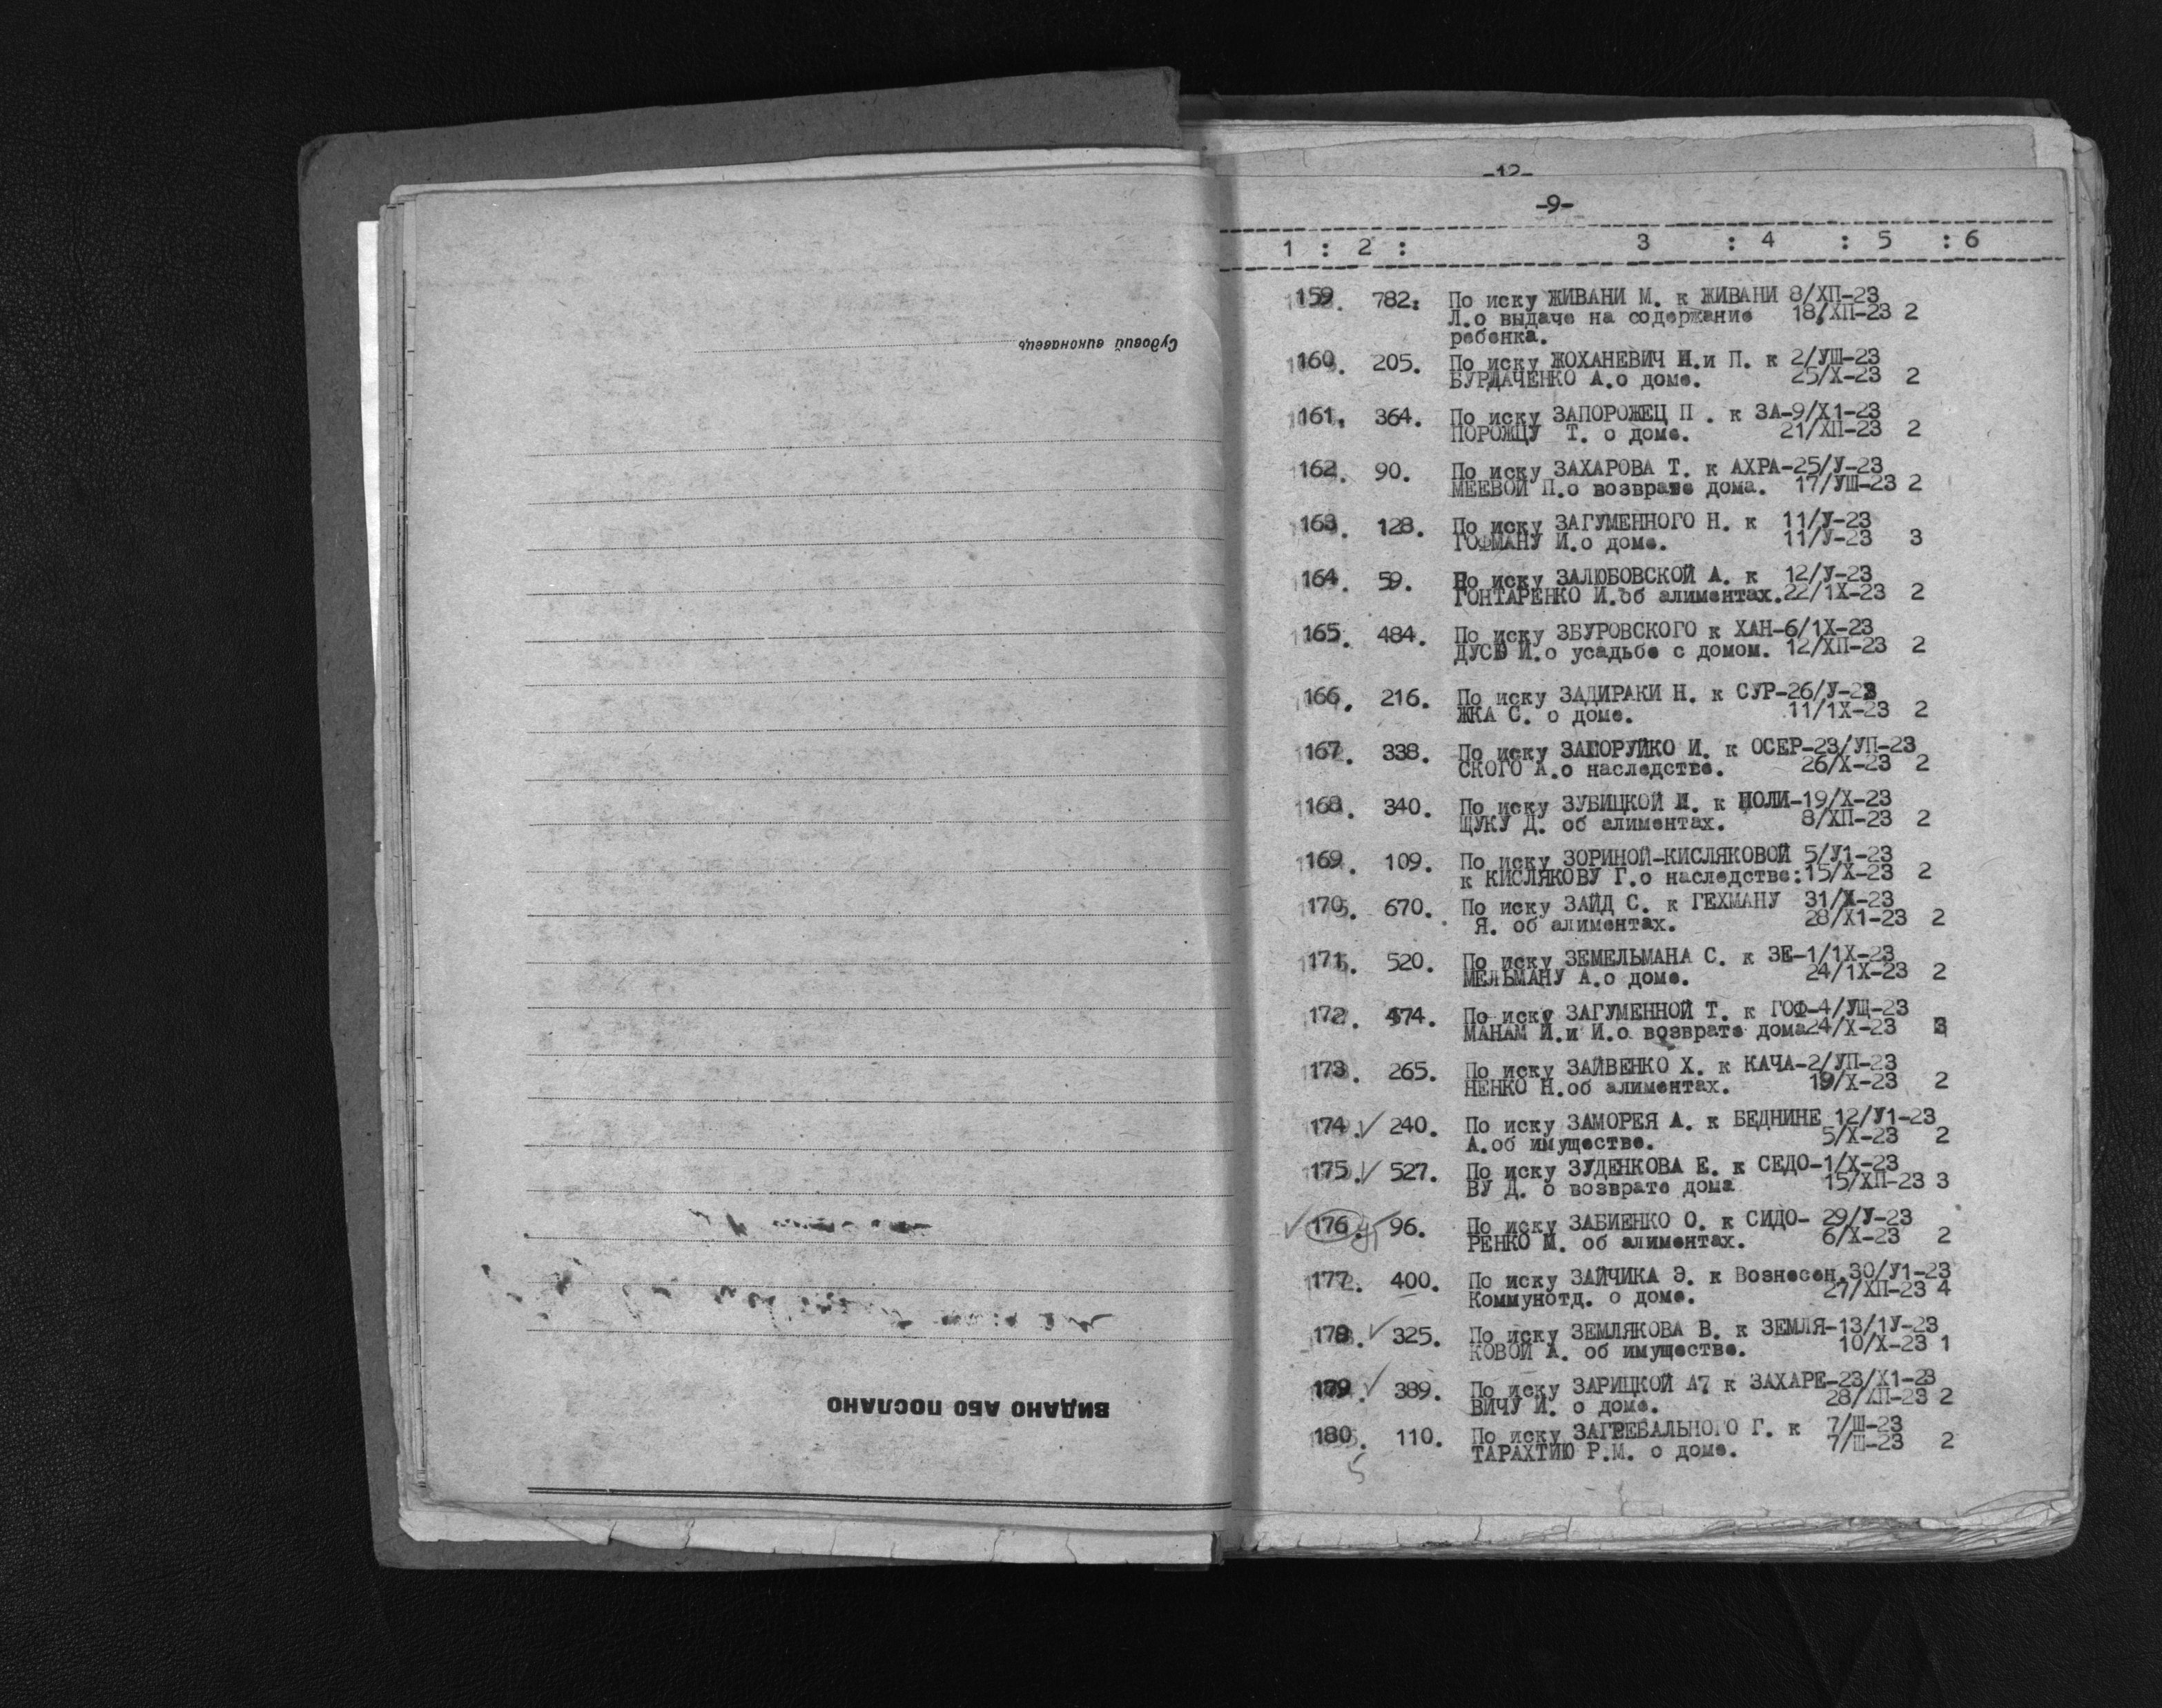 Судовий виконавець
ВИДАНО АБО ПОСЛАНО
-12-
-9-
1 : 2 : 3 : 4 : 5 : 6
159. 782. По иску ЖИВАНИ М. к ЖИВАНИ 8/ХП-23
Л.о выдаче на содержание 18/ХП-23 2
ребенка.
160. 205. По иску ЖОХАНЕВИЧ И.и П. к 2/УШ-23
БУРДАЧЕНКО А.о доме. 25/Х-23 2
161. 364. По иску ЗАПОРОЖЕЦ П . к ЗА-9/Х1-23
ПОРОЖЦУ Т. о доме. 21/ХП-23 2
162. 90. По иску ЗАХАРОВА Т. к АХРА-25/У-23
МЕЕВОЙ П.о возврате дома. 17/УШ-23 2
163. 128. По иску ЗАГУМЕННОГО Н. к 11/У-23
ГОФМАНУ И.о доме. 11/У-23 3
164. 59. По иску ЗАЛЮБОВСКОЙ А. к 12/У-23
ГОНТАРЕНКО И.об алиментах.22/1Х-23 2
165. 484. По иску ЗБУРОВСКОГО к ХАН-6/1Х-23
ДУСЮ И.о усадьбе с домом. 12/ХП-23 2
166. 216. По иску ЗАДИРАКИ Н. к СУР-26/У-23
ЖКА С. о доме. 11/1Х-23 2
167. 338. По иску ЗАПОРУЙКО И. к ОСЕР-23/УП-23
СКОГО А.о наследстве. 26/Х-23 2
168. 340. По иску ЗУБИЦКОЙ И. к ПОЛИ-19/Х-23
ЩУКУ Д. об алиментах. 8/ХП-23 2
169. 109. По иску ЗОРИНОЙ-КИСЛЯКОВОЙ 5/У1-23
к КИСЛЯКОВУ Г.о наследстве:15/Х-23 2
170. 670. По иску ЗАЙД С. к ГЕХМАНУ 31/Х-23
Я. об алиментах. 28/Х1-23 2
171. 520. По иску ЗЕМЕЛЬМАНА С. к ЗЕ-1/1Х-23
МЕЛЬМАНУ А.о доме. 24/1Х-23 2
172. 474. По иску ЗАГУМЕННОЙ Т. к ГОФ-4/УЩ-23
МАНАМ Й.и И.о возврате дома24/Х-23 3
173. 265. По иску ЗАЙВЕНКО Х. к КАЧА-2/УП-23
НЕНКО Н.об алиментах. 19/Х-23 2
174. 240. По иску ЗАМОРЕЯ А. к БЕДНИНЕ 12/У1-23
А.об имуществе. 5/Х-23 2
175. 527. По иску ЗУДЕНКОВА Е. к СЕДО-1/Х-23
ВУ Д. о возврате дома 15/ХП-23 3
176. 96. По иску ЗАБИЕНКО О. к СИДО- 29/У-23
РЕНКО М. об алиментах. 6/Х-23 2
177. 400. По иску ЗАЙЧИКА Э. к Вознесен.30/У1-23
Коммунотд. о доме. 27/ХП-23 4
178. 325. По иску ЗЕМЛЯКОВА В. к ЗЕМЛЯ-13/1У-23
КОВОЙ А. об имуществе. 10/Х-23 1
179. 389. По иску ЗАРИЦКОЙ А7 к ЗАХАРЕ-23/Х1-23
ВИЧУ И. о доме. 28/ХП-23 2
180. 110. По иску ЗАГРЕБАЛЬНОГО Г. к 7/Ш-23
ТАРАХТИЮ Р.М. о доме. 7/Ш-23 2